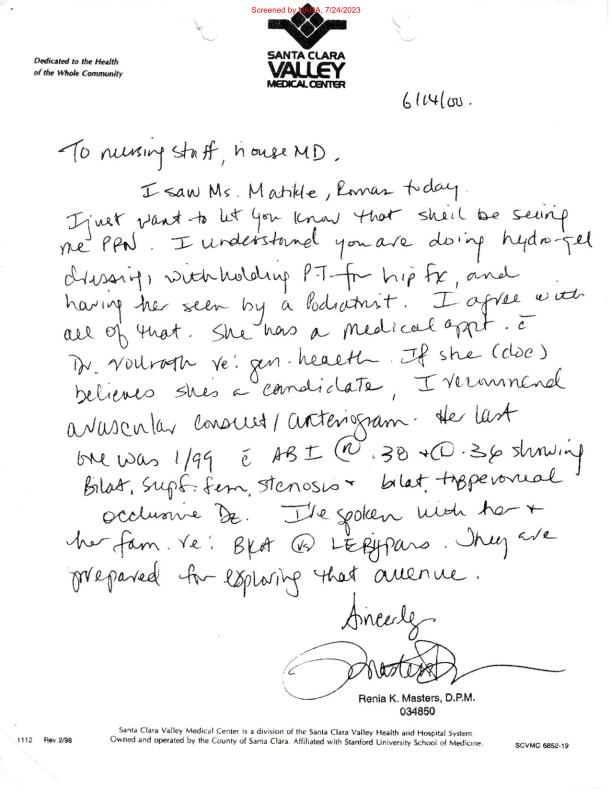 Screened by NARA, 7/24/2023
SANTA CLARA
VALLEY
MEDICAL CENTER
Dedicated to the Health
of the Whole Community
6/14/00.
To nursing staff, house MD.
I saw Ms. Matikle, Romas today.
I just want to let you know that she'll be seeing
me PRN. I understand you are doing hydro-gel
dressing, withholding P.T. for hip fx, and
having her seen by a Podiatrist. I agree with
all of that. She has a medical appt. c̄
Dr. Vollrath re: gen. health. If she (doc)
believes she's a candidate, I recommend
a vascular consult / arteriogram. Her last
one was 1/99 c̄ ABI Ⓡ .38 + Ⓛ .36 showing
Bilat. Supf. fem. stenosis + bilat.
occlusive Dz. I've spoken with her +
her fam. re: BKA vs LE Bypass. They are
prepared for exploring that avenue.
Sincerely,
Renia K. Masters, D.P.M.
034850
Santa Clara Valley Medical Center is a division of the Santa Clara Valley Health and Hospital System
Owned and operated by the County of Santa Clara. Affiliated with Stanford University School of Medicine.
1112 Rev 2/98
SCVMC 6852-19